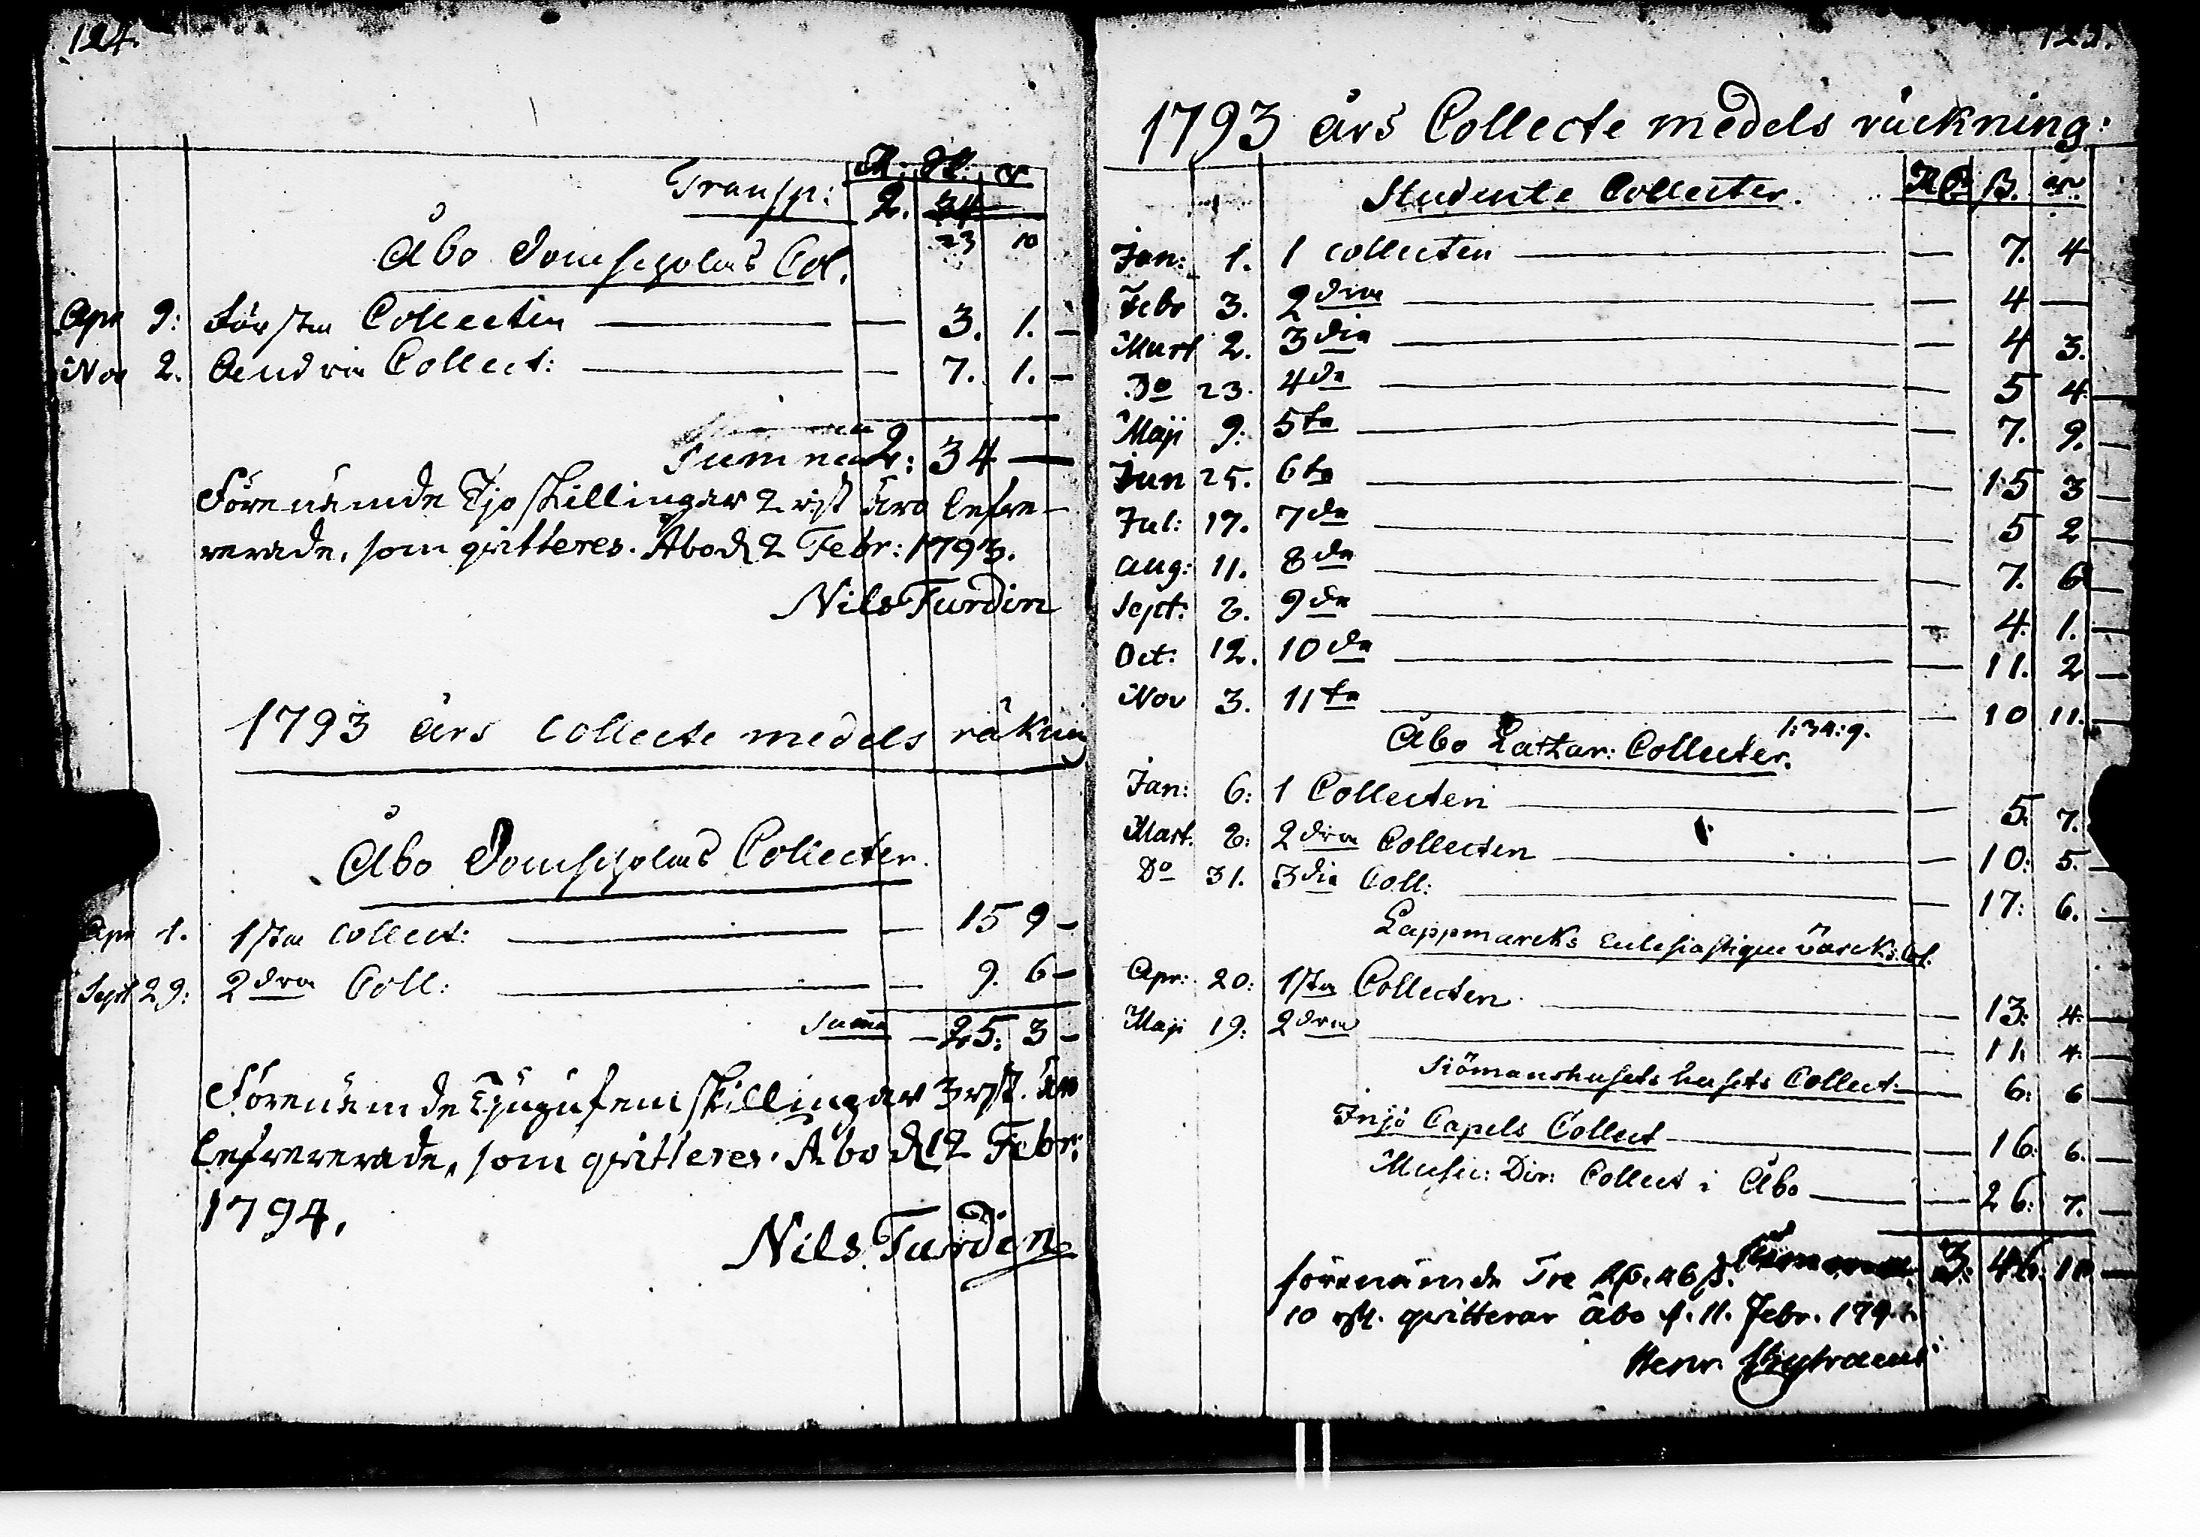 124.
R: Sk: r
Transp: 2. 34
23 10
Åbo Domscholas Col.
Apr 9: Första Collecten — 3. 1. —
Nov 2. Andra Collect: — 7. 1. —
Summa 2: 34 —
Förenämde Tjo skillingar 2 rst äro lefre-
rerade, som qvitteres. Åbo d 2 Febr: 1793.
Nils Turdin
1793 års Collecte medels räkning
Åbo Domscholas Collecter.
Apr 1. 1sta Collect: — 15 9 —
Sept 29: 2dra Coll: — 9. 6 —
Summa — 25: 3 —
Förenämde Tjugufem skillingar 3 rst. äro
lefrererade, som qvitteres. Åbo d 12 Febr:
1794.
Nils Turdin
1793 års Collecte medels räckning:
Studente Collecter. R B. rr
Jan: 1. 1 collecten — 7. 4
Febr 3. 2dra — 4 —
Mart 2. 3dia — 4 3.
Do 23. 4da — 5 4.
Maji 9: 5ta — 7. 9.
Jun 25. 6ta — 15 3
Jul: 17. 7da — 5 2
Aug: 11. 8da — 7. 6
Sept: 8. 9da — 4. 1.
Oct: 12. 10da — 11. 2
Nov 3. 11ta — 10 11.
1:34:9.
Åbo Latzar: Collecter.
Jan: 6: 1 Collecten — 5. 7.
Mart. 8: 2dra Collecten — 10: 5.
Do 31. 3dia Coll: — 17: 6.
Lappmarcks Eclesiastique värcks Col.
Apr: 20: 1sta Collecten — 13: 4.
Maji 19: 2dra — 11. 4.
Siömanshusets husets Collect: — 6: 6
Injö Capels Collect — 16: 6.
Music: Dir: Collect i Åbo — 26: 7.
Summa 3. 46. 10 —
förenämde Tre R. 46 s.
10 rst. qvitterar Åbo d. 11. Febr.
Henr.